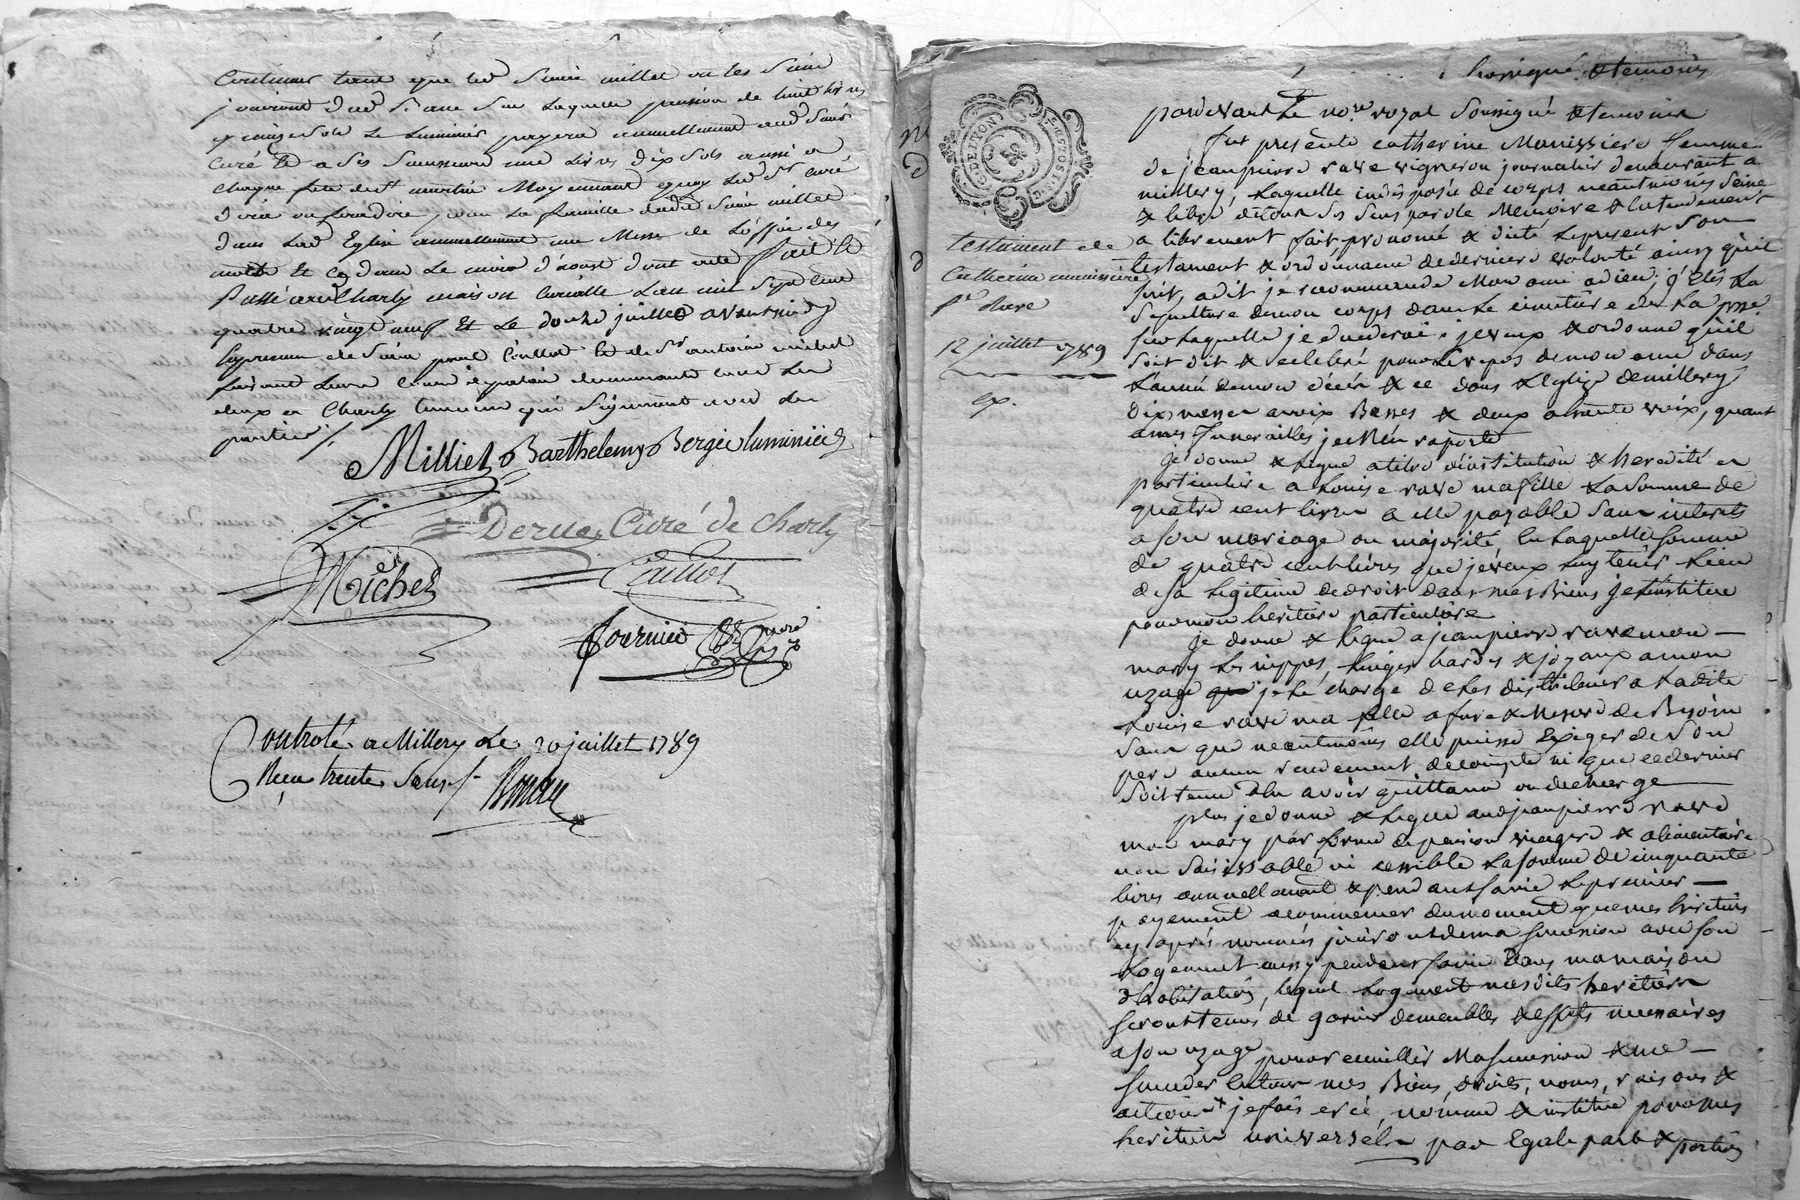 Continuer tant que led Sieur millet ou les Siens
jouiront dud. Banc Sur laquelle pension de huit livres
quinze sols le luminier payera annuellement aud Sieur
curé & a Ses Successeurs une livre dix sols aussi a
chaque fete de st martin Moyennant quoy led Sr curé
dira ou fera dire pour la famille dudit Sieur millet
dans lad Eglise annuellement une Messe de l'office des
morts Et ce dans le mois d'aoust dont acte fait &
Passé aud Charly maison curialle L'an mil Sept cent
quatre vingt neuf Et le douze juillet avant midy
En presence de Sieur paul Caillot & de Sr antoine michel
demeurants tous les
deux a Charly temoins qui Signeront avec les
parties ./.
Milliet Barthelemy Bergé luminiée
Derue Curé de Charly
Michel
Caillot
Fournier nore
Controlé a Millery Le 20 juillet 1789
Reçu trente Sous /.
Soussigné & temoins
pardevant Le nore royal Soussigné & temoins
fut presente catherine Manissiere femme
de jean pierre rave vigneron journalier demeurant a
millery, Laquelle indisposée de corps neantmoins Seine
& libre de tous Ses Sens parole Memoire & Entendement
a librement fait, prononcé & dicté Le present Son
testament & ordonnance de derniere volonté ainsy qu'il
Suit, a dit je recommande Mon ame a dieu, j'Elis La
Sepulture de mon corps dans Le cimetiere de La psse
Sur Laquelle je decederai, je veux & ordonne qu'il
Soit dit & celebré pour Le repos de mon ame dans
L'année de mon décés & ce dans L'Eglise de millery
dix messes a voix Basses & deux a haute voix, quant
a mes funerailles je m'En raporte
je donne & legue a titre d'institution & heredité en
particuliere a Louise rave ma fille La Somme de
quatre cent livres a elle payable Sans interets
a Son mariage ou majorité, En Laquelle Somme
de quatre cent livres que je veux luy tenir Lieu
de Sa Legitime de droit dans mes Biens je L'institue
pour mon heritiere particuliere
je donne & legue a jean pierre rave mon
mary Les nippes, Linges hardes & joyaux a mon
uzage je Le charge de Les distribuer a Ladite
Louise rave ma fille a fur & Mesure de Besoin
Sans que neantmoins elle puisse Exiger de Son
pere aucun rendement de compte ni que ce dernier
Soit tenu d'En avoir quittance ou decharge
plus je donne & Legue aud jean pierre rave
mon mary par forme de pension viagere & alimentaire
non Saisissable ni cessible La Somme de cinquante
livres annuellement & pendant Sa vie Le premier
payement a commencer du moment que mes heritiers
cy après nommés jouiront de ma Succession avec Son
Logement aussy pendant Sa vie dans ma maison
d'habitation, lequel Logement mesdits heritiers
Seront tenus de garnir de meubles & effets necessaires
a Son uzage pour recueillir Ma Succession & me
Succeder En tous mes Biens, droits, noms, raisons &
actions je fais et cré, nomme & institue pour mes
heritiers universels par Egale part & portion
testament de
Catherine manissiere
fe Rave
12 juillet 1789
ex.